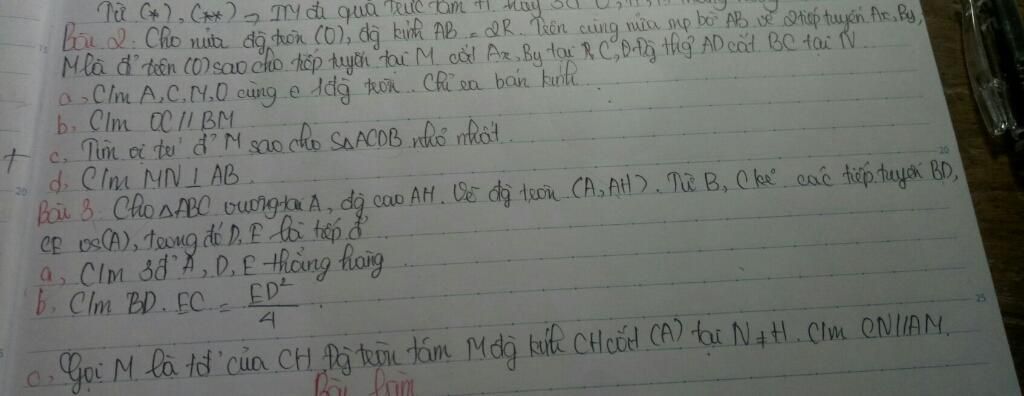 Từ (*), (**) → IM đi qua trực tâm H hay
Bài 2. Cho nửa đg tròn (O), đg kính AB = 2R. Trên cùng nửa mp bờ AB vẽ 2 tiếp tuyến Ax, By,
M là đ' trên (O) sao cho tiếp tuyến tại M cắt Ax, By tại C, D. Đg thg AD cắt BC tại N
a, C/m A, C, M, O cùng ∈ 1 đg tròn. Chỉ ra bán kính
b, C/m OC // BM
c, Tìm vị trí đ' M sao cho S△ACDB nhỏ nhất
d, C/m MN ⊥ AB
Bài 3. Cho △ABC vuông tại A, đg cao AH. Vẽ đg tròn (A, AH). Từ B, C kẻ các tiếp tuyến BD,
CE vs (A), trong đó D, E là tiếp đ'
a, C/m 3đ' A, D, E thẳng hàng
b, C/m BD . EC = ED²/4
c, Gọi M là tđ' của CH. Đg tròn tâm M đg kính CH cắt (A) tại N ≠ H. C/m CN // AM.
Bài làm